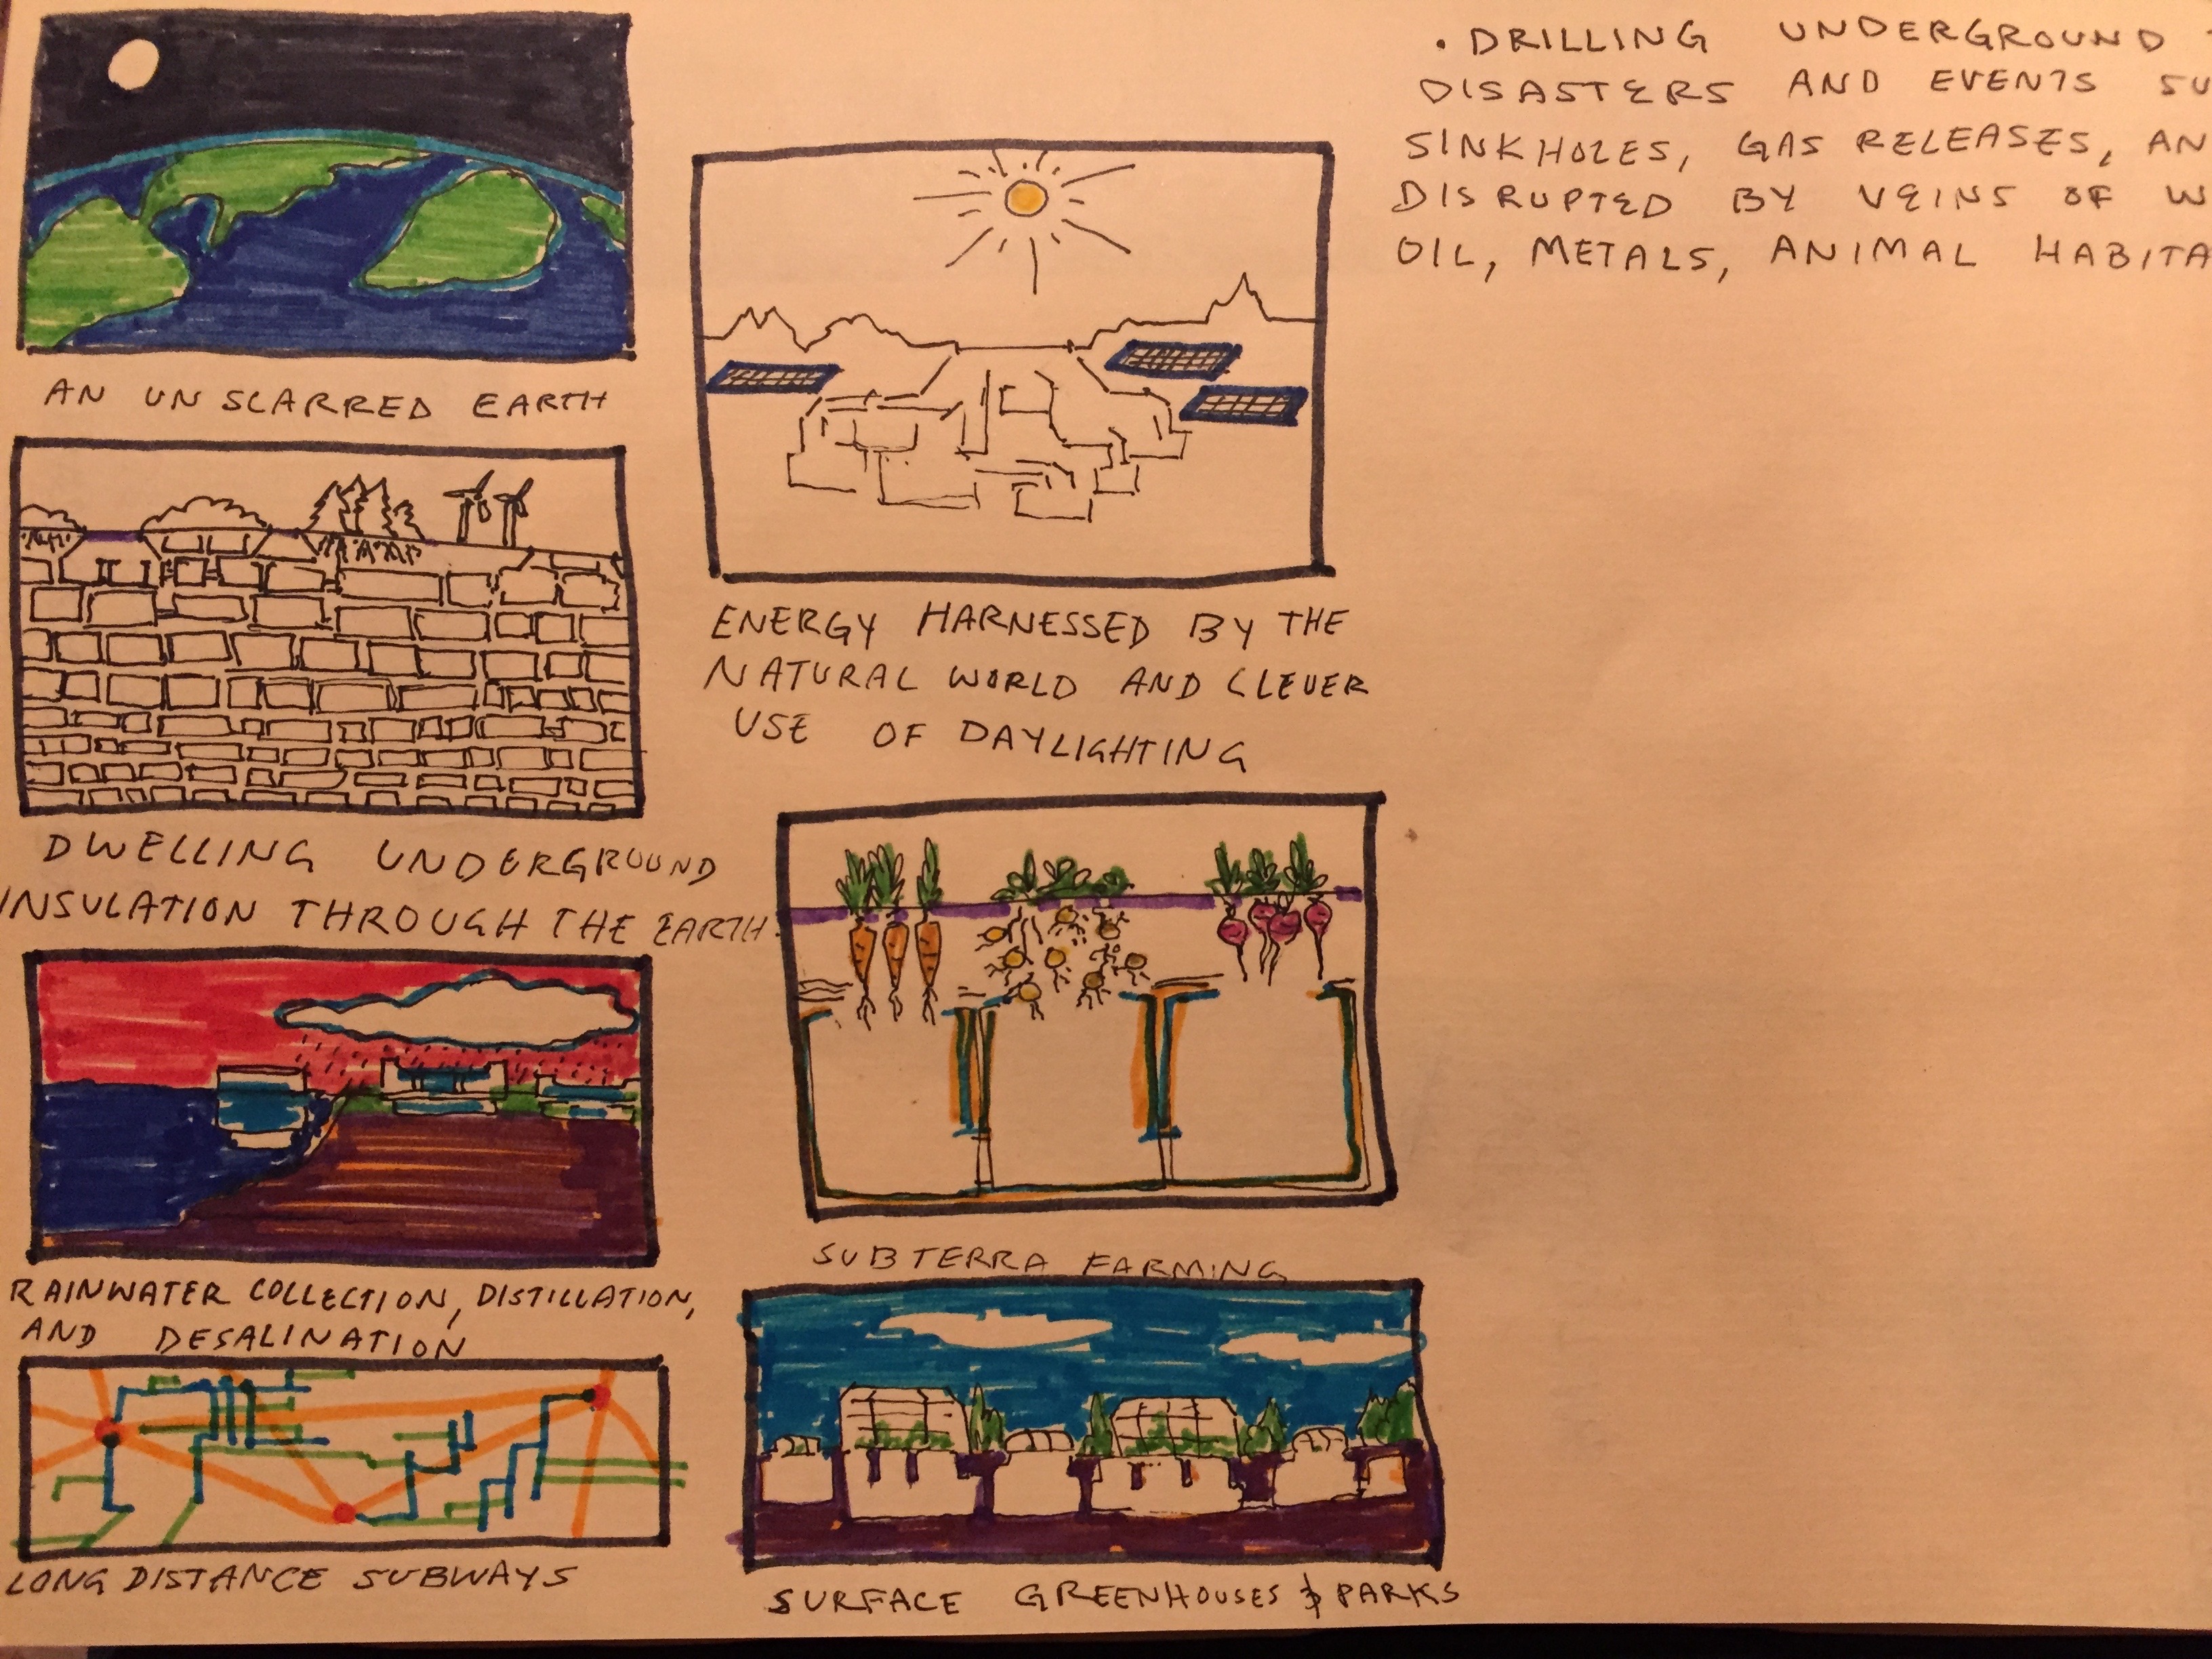 AN UNSCARRED EARTH
DWELLING UNDERGROUND
INSULATION THROUGH THE EARTH.
RAINWATER COLLECTION, DISTILLATION,
AND DESALINATION
LONG DISTANCE SUBWAYS
ENERGY HARNESSED BY THE
NATURAL WORLD AND CLEVER
USE OF DAYLIGHTING
SUBTERRA FARMING
SURFACE GREENHOUSES & PARKS
• DRILLING UNDERGROUND
DISASTERS AND EVENTS SU
SINKHOLES, GAS RELEASES, AN
DISRUPTED BY VEINS OF W
OIL, METALS, ANIMAL HABITA